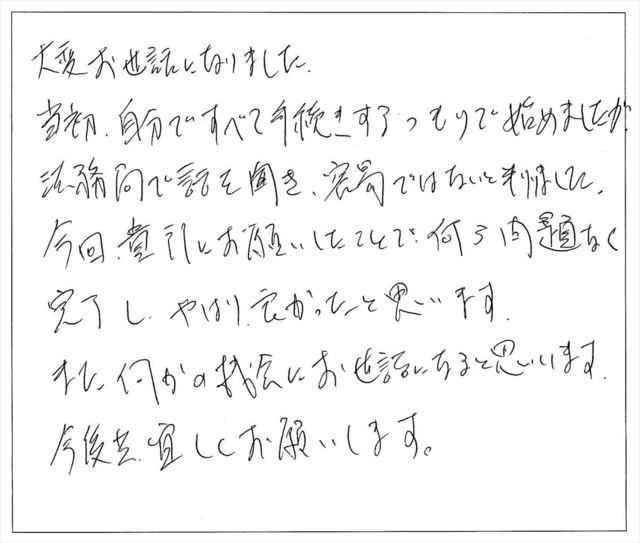 大変お世話になりました.
当初、自分ですべて手続きするつもりで始めましたが、
法務局で話を聞き、容易ではないと判りました。
今回、貴引にお願いしたことで、何ら問題なく
完了し、やはり良かったと思います.
また、何かの機会にお世話になると思います.
今後共、宜しくお願いします。